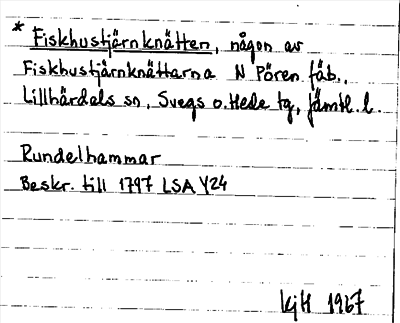 * Fiskhustjärnknätten, någon av
Fiskhustjärnknättarna N Pören fäb.,
Lillhärdals sn, Svegs o. Hede tg, Jämtl. l.
Rundelhammar
Beskr. till 1797 LSA Y24
KjH 1967